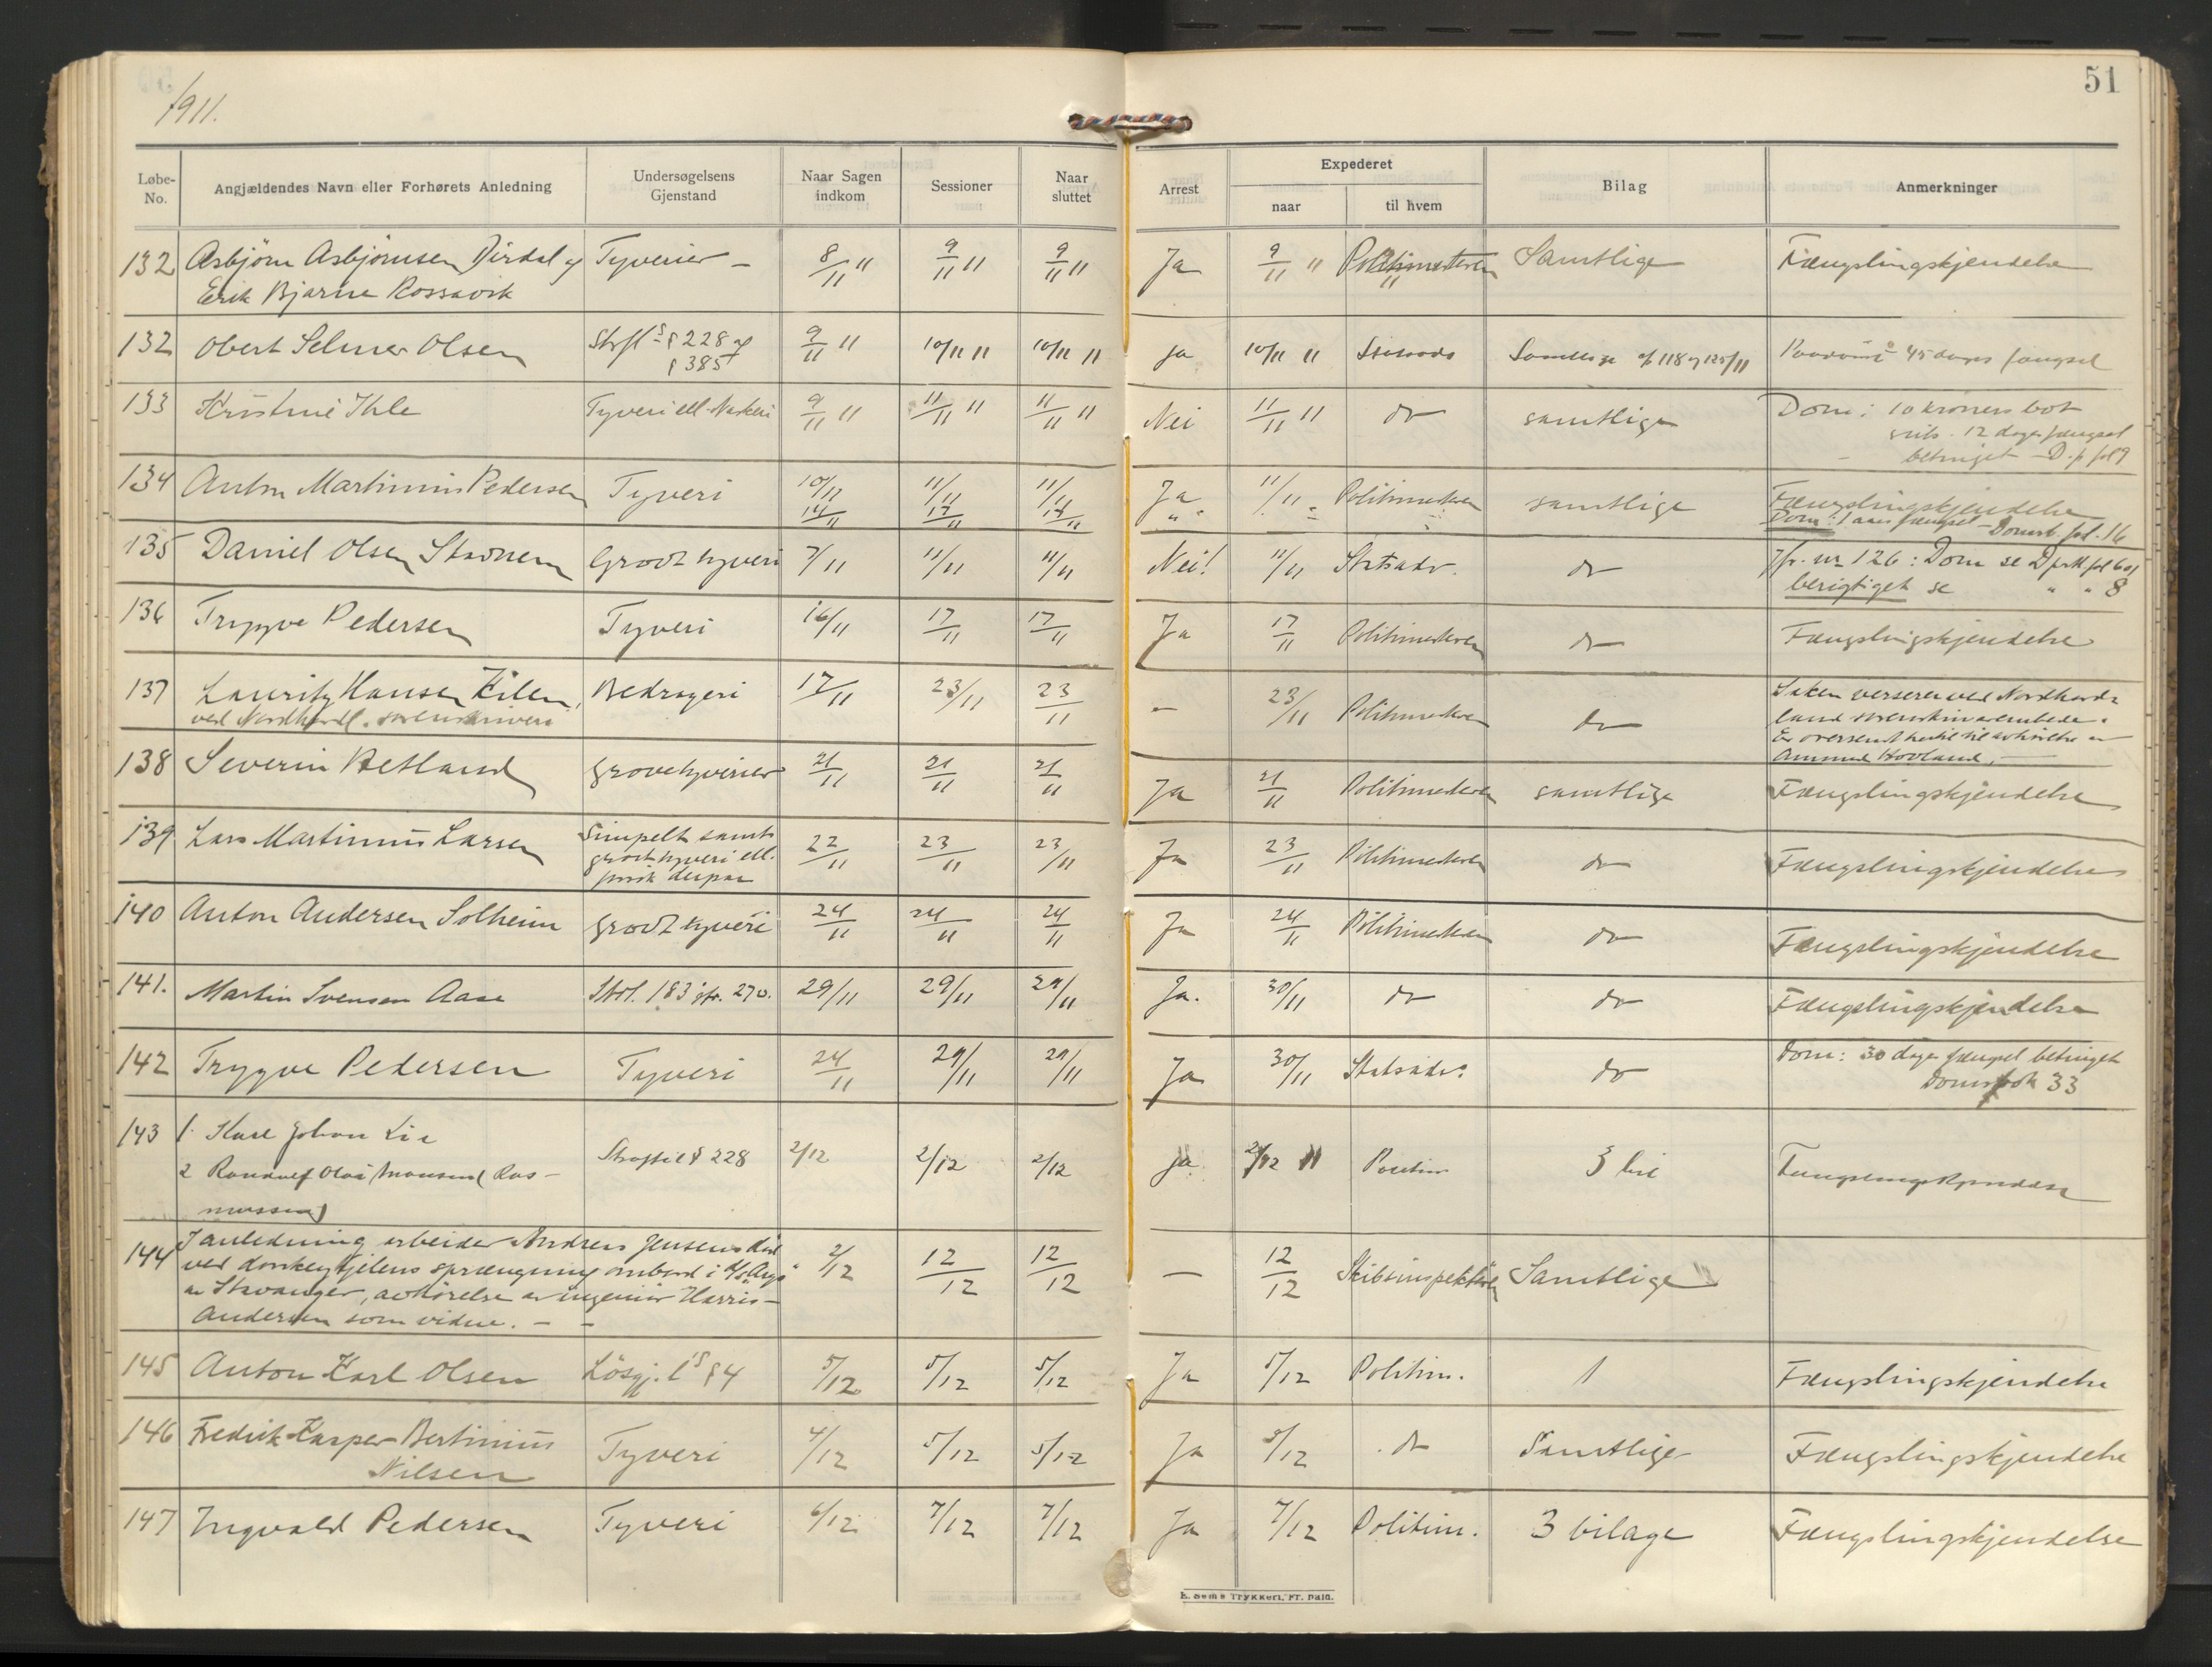 1911.
51
Løbe-No. Angjældendes Navn eller Forhørets Anledning Undersøgelsens Gjenstand Naar Sagen indkom Sessioner Naar sluttet Arrest Expederet naar til hvem Bilag Anmerkninger
132 Asbjörn Asbjörnsen Dirdal og Tyverier – 8/11 " 9/11 " 9/11 " Ja 9/11 " Politimesteren Samtlige Fængslingskjendelse
Erik Bjarne Rossavik
132 Obert Selmer Olsen Strfl s § 228 og 9/11 " 10/11 11 10/11 11 ja 10/11 11 Samtlige af 118 og 125/11 45 dages fængsel
§ 385
133 Kristine Ihle Tyveri ell. Naskeri 9/11 " 11/11 " 11/11 " Nei 11/11 " do samtlige Dom: 10 kroners bot
subs. 12 dages fængsel
betinget – D.p. fol 9
134 Anton Martinius Pedersen Tyveri 10/11 11/11 11/11 Ja 11/11 Politimesteren samtlige Fængslingskjendelse
14/11 17/11 " Dom: 1 aars fængsel – Domsb. fol. 16
135 Daniel Olsen Stavnem Grovt tyveri 7/11 11/11 11/11 Nei! 11/11 Statsadv. do Jfr. nr 126: Dom se
berigtiget se " " 8
136 Trygve Pedersen Tyveri 16/11 17/11 17/11 Ja 17/11 Politimesteren do Fængslingskjendelse
137 Lauritz Hansen Eilen, Bedrageri 17/11 23/11 23/11 – 23/11 Politimesteren do Saken verserer ved Nordhord-
ved Nordhordl. sorenskriveri land sorenskriverembede.
Er oversendt hertil til avhörelse av
Ammund Hovland. –
138 Severin Retland grove tyverier 21/11 21/11 21/11 Ja 21/11 Politimesteren samtlige Fængslingskjendelse
139 Lars Martinius Larsen Simpelt samt 22/11 23/11 23/11 Ja 23/11 Politimesteren do Fængslingskjendelse
grovt tyveri ell.
forsök derpaa
140 Anton Andersen Solheim grovt tyveri 24/11 24/11 24/11 Ja 24/11 Politimesteren do Fængslingskjendelse
141. Martin Svensen Aase Strl. 183 jfr. 270. 29/11 29/11 29/11 Ja. 30/11 do do Fængslingskjendelse
142 Trygve Pedersen Tyveri 24/11 29/11 29/11 Ja 30/11 Statsadv. do Dom: 30 dages fængsel betinget
Domsbok 33
143 1. Karl Johan Lie Straffel § 228 2/12 2/12 2/12 ja 2/12 11 Politim 3 bil Fængslingskjendelse
2 Olai Monsen (Ras-
mussen)
144 I anledning arbeider Andreas Jensens död 2/12 12/12 12/12 – 12/12 Skibsinspektören Samtlige
ved donkeykjelens sprængning ombord i
av Stavanger, avhörelse av ingeniör Harris-
Andersen som vidne. – –
145 Anton Karl Olsen Lösgj. l's § 4 5/12 5/12 5/12 Ja 5/12 Politim. 1 Fængslingskjendelse
146 Fredrik Kasper Bertinius Tyveri 4/12 5/12 5/12 Ja 5/12 do Samtlige Fængslingskjendelse
Nilsen
147 Ingvald Pedersen Tyveri 6/12 7/12 7/12 Ja 7/12 Politim. 3 bilage Fængslingskjendelse
E. Sem's Trykkeri, Fr. hald.